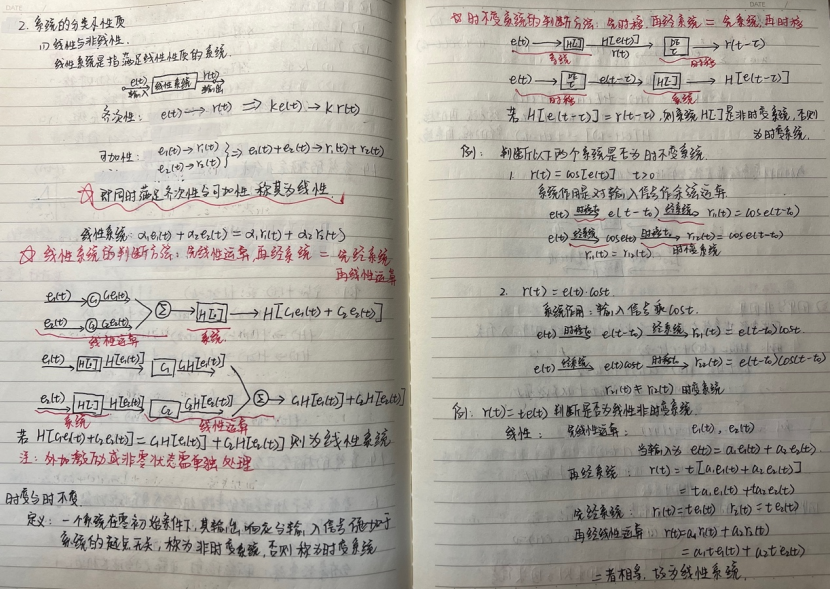 2. 系统的分类及性质
(1) 线性与非线性.
线性系统是指满足线性性质的系统.
e(t) 输入 线性系统 r(t) 输出
齐次性: e(t) → r(t) ⇒ ke(t) → kr(t)
可加性: e₁(t)→r₁(t) e₂(t)→r₂(t) } ⇒ e₁(t)+e₂(t)→r₁(t)+r₂(t)
☆ 即同时满足齐次性与可加性 称其为线性.
线性系统: α₁e₁(t)+α₂e₂(t) = α₁r₁(t)+α₂r₂(t)
☆ 线性系统的判断方法: 先线性运算,再经系统 = 先经系统
再线性运算
e₁(t) → C₁ C₁e₁(t)
e₂(t) → C₂ C₂e₂(t) Σ → H[·] → H[C₁e₁(t)+C₂e₂(t)]
线性运算 系统
e₁(t) → H[·] H[e₁(t)] C₁ C₁H[e₁(t)]
e₂(t) → H[·] H[e₂(t)] C₂ C₂H[e₂(t)] Σ → C₁H[e₁(t)]+C₂H[e₂(t)]
系统 线性运算
若 H[C₁e₁(t)+C₂e₂(t)] = C₁H[e₁(t)]+C₂H[e₂(t)] 则为线性系统
注: 外加激励或非零状态需单独处理
时变与时不变
定义: 一个系统在零初始条件下,其输出响应与输入信号施加于
系统的起点无关,称为非时变系统,否则称为时变系统
☆ 时不变系统的判断方法: 先时移,再经系统 = 先系统,再时移
e(t) → H[·] H[e(t)] r(t) → DE τ → r(t-τ)
系统 时移
e(t) → DE τ e(t-τ) → H[·] → H[e(t-τ)]
时移 系统
若 H[e(t-τ)] = r(t-τ),则系统H[·]是非时变系统,否则
为时变系统.
例: 判断以下两个系统是否为时不变系统.
1. r(t) = cos[e(t)] t>0
系统作用是对输入信号作余弦运算
e(t) 时移t₀ e(t-t₀) 经系统 r₁₁(t) = cos e(t-t₀)
e(t) 经系统 cos e(t) 时移t₀ r₁₂(t) = cos e(t-t₀)
r₁₁(t) = r₁₂(t) 时不变系统
2. r(t) = e(t)·cost.
系统作用: 输入信号乘 cost.
e(t) 时移t₀ e(t-t₀) 经系统 r₂₁(t) = e(t-t₀)cost.
e(t) 经系统 e(t)cost 时移t₀ r₂₂(t) = e(t-t₀)cos(t-t₀)
r₂₁(t) ≠ r₂₂(t) 时变系统
例: r(t) = te(t) 判断是否为线性非时变系统.
线性: 先线性运算: e₁(t), e₂(t)
当输入为 e(t) = a₁e₁(t) + a₂e₂(t)
再经系统: r(t) = t[a₁e₁(t)+a₂e₂(t)]
= ta₁e₁(t) + ta₂e₂(t)
先经系统: r₁(t) = te₁(t) r₂(t) = te₂(t)
再经线性运算 r(t) = a₁r₁(t) + a₂r₂(t)
= a₁te₁(t) + a₂te₂(t)
二者相等,故为线性系统.